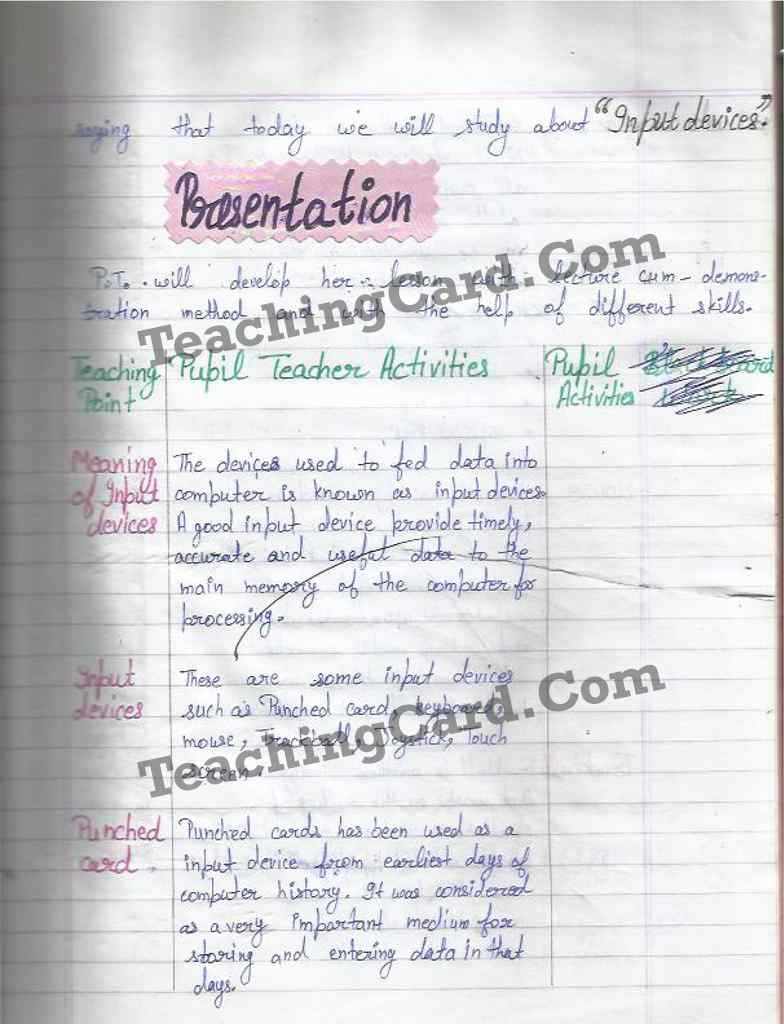 saying that today we will study about "Input devices."
Presentation
P.T. will develop her lesson with lecture cum - demons-
tration method and with the help of different skills.
Teaching Point | Pupil Teacher Activities | Pupil Activities
Meaning of Input devices
The devices used to fed data into
computer is known as input devices.
A good input device provide timely,
accurate and useful data to the
main memory of the computer for
processing.
Input devices
These are some input devices
such as Punched card, keyboard,
mouse, Trackball, Joystick, Touch
screen.
Punched card.
Punched cards has been used as a
input device from earliest days of
computer history. It was considered
as a very important medium for
storing and entering data in that
days.
TeachingCard.Com
TeachingCard.Com